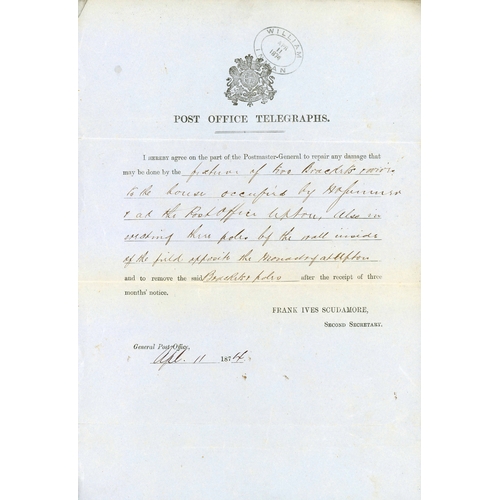 WILLIAM
INMAN
POST OFFICE TELEGRAPHS.
I HEREBY agree on the part of the Postmaster-General to repair any damage that
may be done by the fixture of two Brackets & wires
to the house occupied by
& at the Post Office Upton, Also in
erecting three poles by the wall inside
of the field opposite the at Upton
and to remove the said Brackets & poles after the receipt of three
months' notice.
FRANK IVES SCUDAMORE,
SECOND SECRETARY.
General Post Office,
Apl. 11 1874